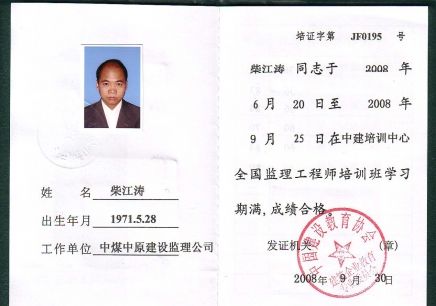 姓 名 柴江涛
出生年月 1971.5.28
工作单位 中煤中原建设监理公司
培证字第 JF0195 号
柴江涛 同志于 2008 年
6 月 20 日至 2008 年
9 月 25 日在中建培训中心
全国监理工程师培训班学习
期满,成绩合格。
发证机关 (章)
2008年 9 月 30日
中国建设教育协会